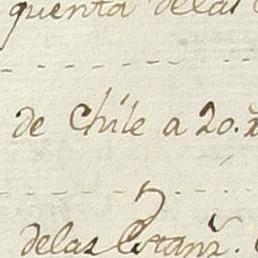 quenta delas
de Chile a 20.
delas Estanz.